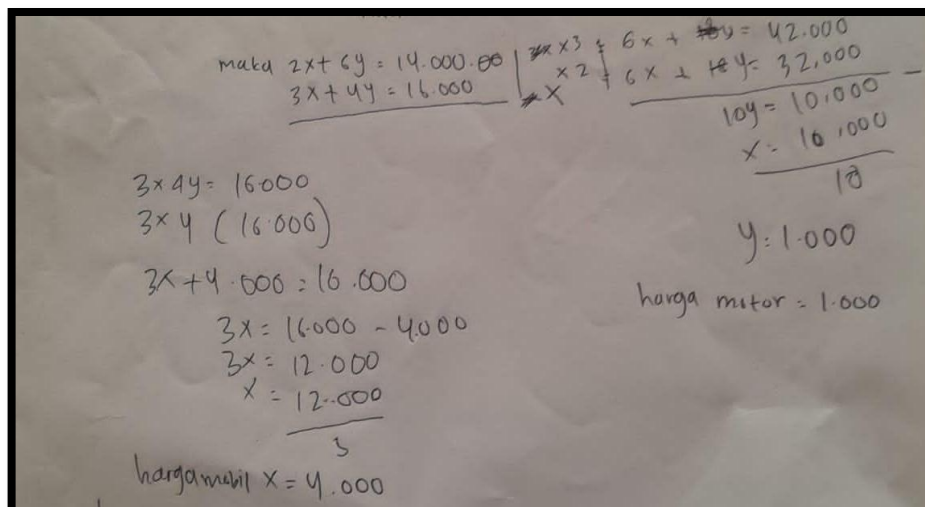 maka 2x + 6y = 14.000.00 | x3 | 6x + 18y = 42.000
3x + 4y = 16.000 | x2 | 6x + 18y = 32.000 -
10y = 10.000
x = 10.000
10
y = 1.000
harga motor = 1.000
3x4y = 16000
3x4 (16.000)
3x + 4.000 = 16.000
3x = 16.000 - 4.000
3x = 12.000
x = 12.000
3
harga mobil x = 4.000